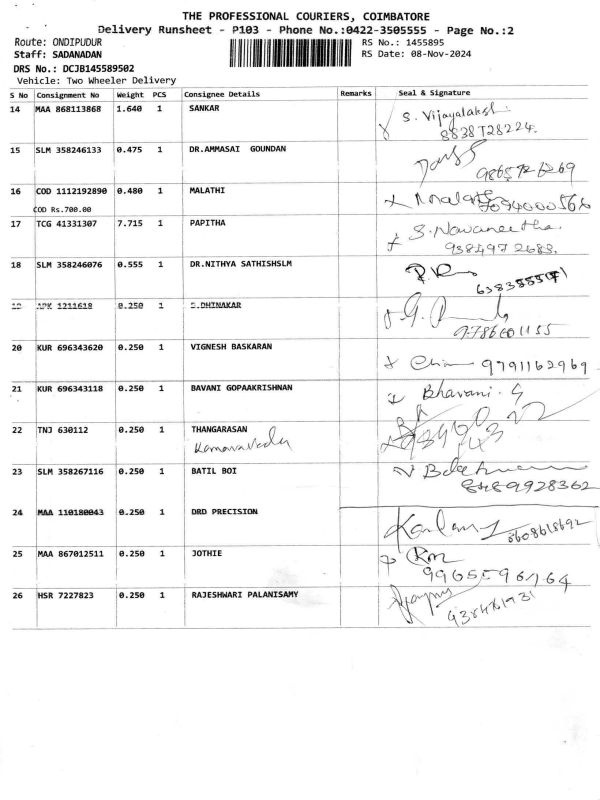 THE PROFESSIONAL COURIERS, COIMBATORE
Delivery Runsheet - P103 - Phone No.:0422-3505555 - Page No.:2
Route: ONDIPUDUR RS No.: 1455895
Staff: SADANADAN RS Date: 08-Nov-2024
DRS No.: DCJB145589502
Vehicle: Two Wheeler Delivery
S No Consignment No Weight PCS Consignee Details Remarks Seal & Signature
14 MAA 868113868 1.640 1 SANKAR S. Vijayalakshi
8838728224.
15 SLM 358246133 0.475 1 DR.AMMASAI GOUNDAN
16 COD 1112192890 0.480 1 MALATHI
COD Rs.700.00
17 TCG 41331307 7.715 1 PAPITHA S. Navaneetha.
18 SLM 358246076 0.555 1 DR.NITHYA SATHISHSLM
19 APK 1211618 0.250 1 S.DHINAKAR
9786601155
20 KUR 696343620 0.250 1 VIGNESH BASKARAN 9791162969
21 KUR 696343118 0.250 1 BAVANI GOPAAKRISHNAN Bhavani. G
22 TNJ 630112 0.250 1 THANGARASAN
23 SLM 358267116 0.250 1 BATIL BOI
8489928362
24 MAA 110180043 0.250 1 DRD PRECISION
8608618692
25 MAA 867012511 0.250 1 JOTHIE
9965596764
26 HSR 7227823 0.250 1 RAJESHWARI PALANISAMY